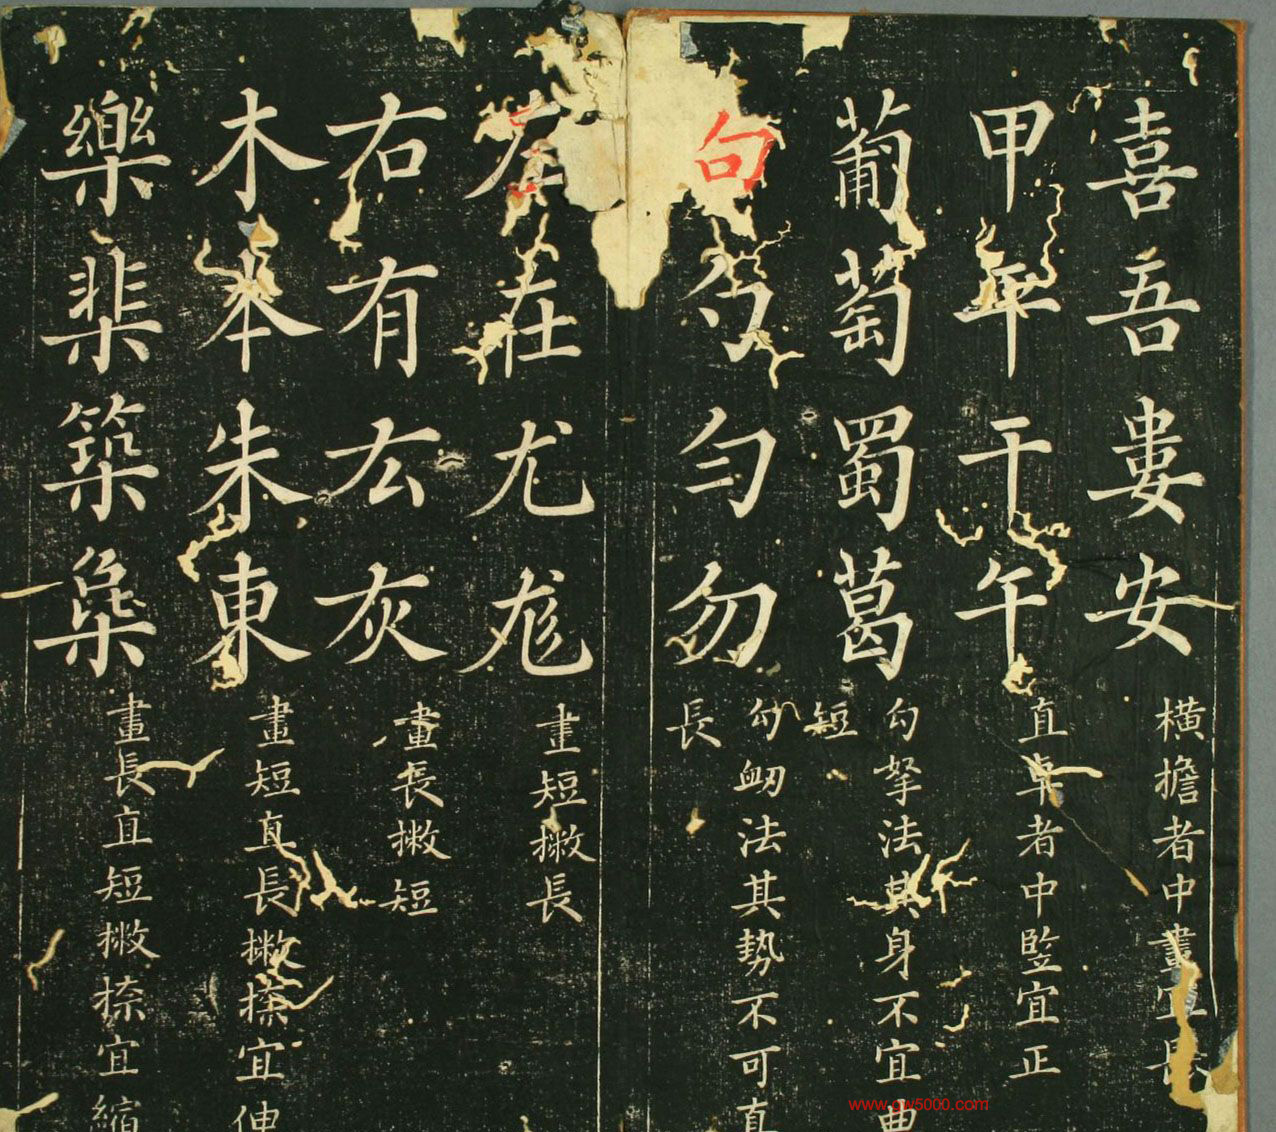 喜吾婁安
橫擔者中畫宜長
甲平干午
直卓者中竪宜正
葡萄蜀葛
勾拏法其身不宜曲
短
句勺勻勿
勾衂法其勢不可直
長
左在尤尨
畫短撇長
右有厷灰
畫長撇短
木本朱東
畫短直長撇捺宜伸
樂棐築㯱
畫長直短撇捺宜縮
www.gw5000.com